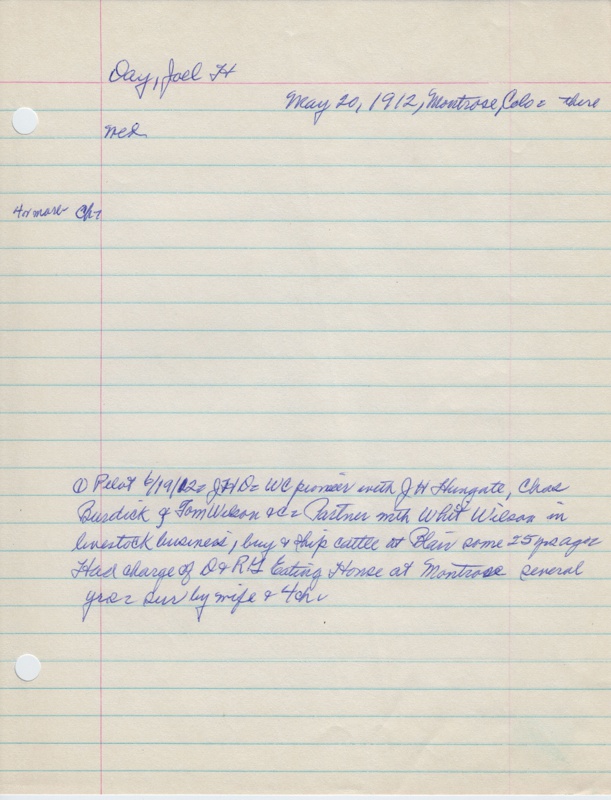 Day, Joel H
May 20, 1912, Montrose, Colo = there
wed
4 or more Ch-
① Pilot 6/19/12 = JHD = WC pioneer with J H Hungate, Chas
Burdick & Tom Wilson &c = Partner with Whit Wilson in
livestock business, buy & ship cattle at Blair some 25 yrs ago =
Had charge of D & RG Eating House at Montrose several
yrs = sur by wife & 4 ch.